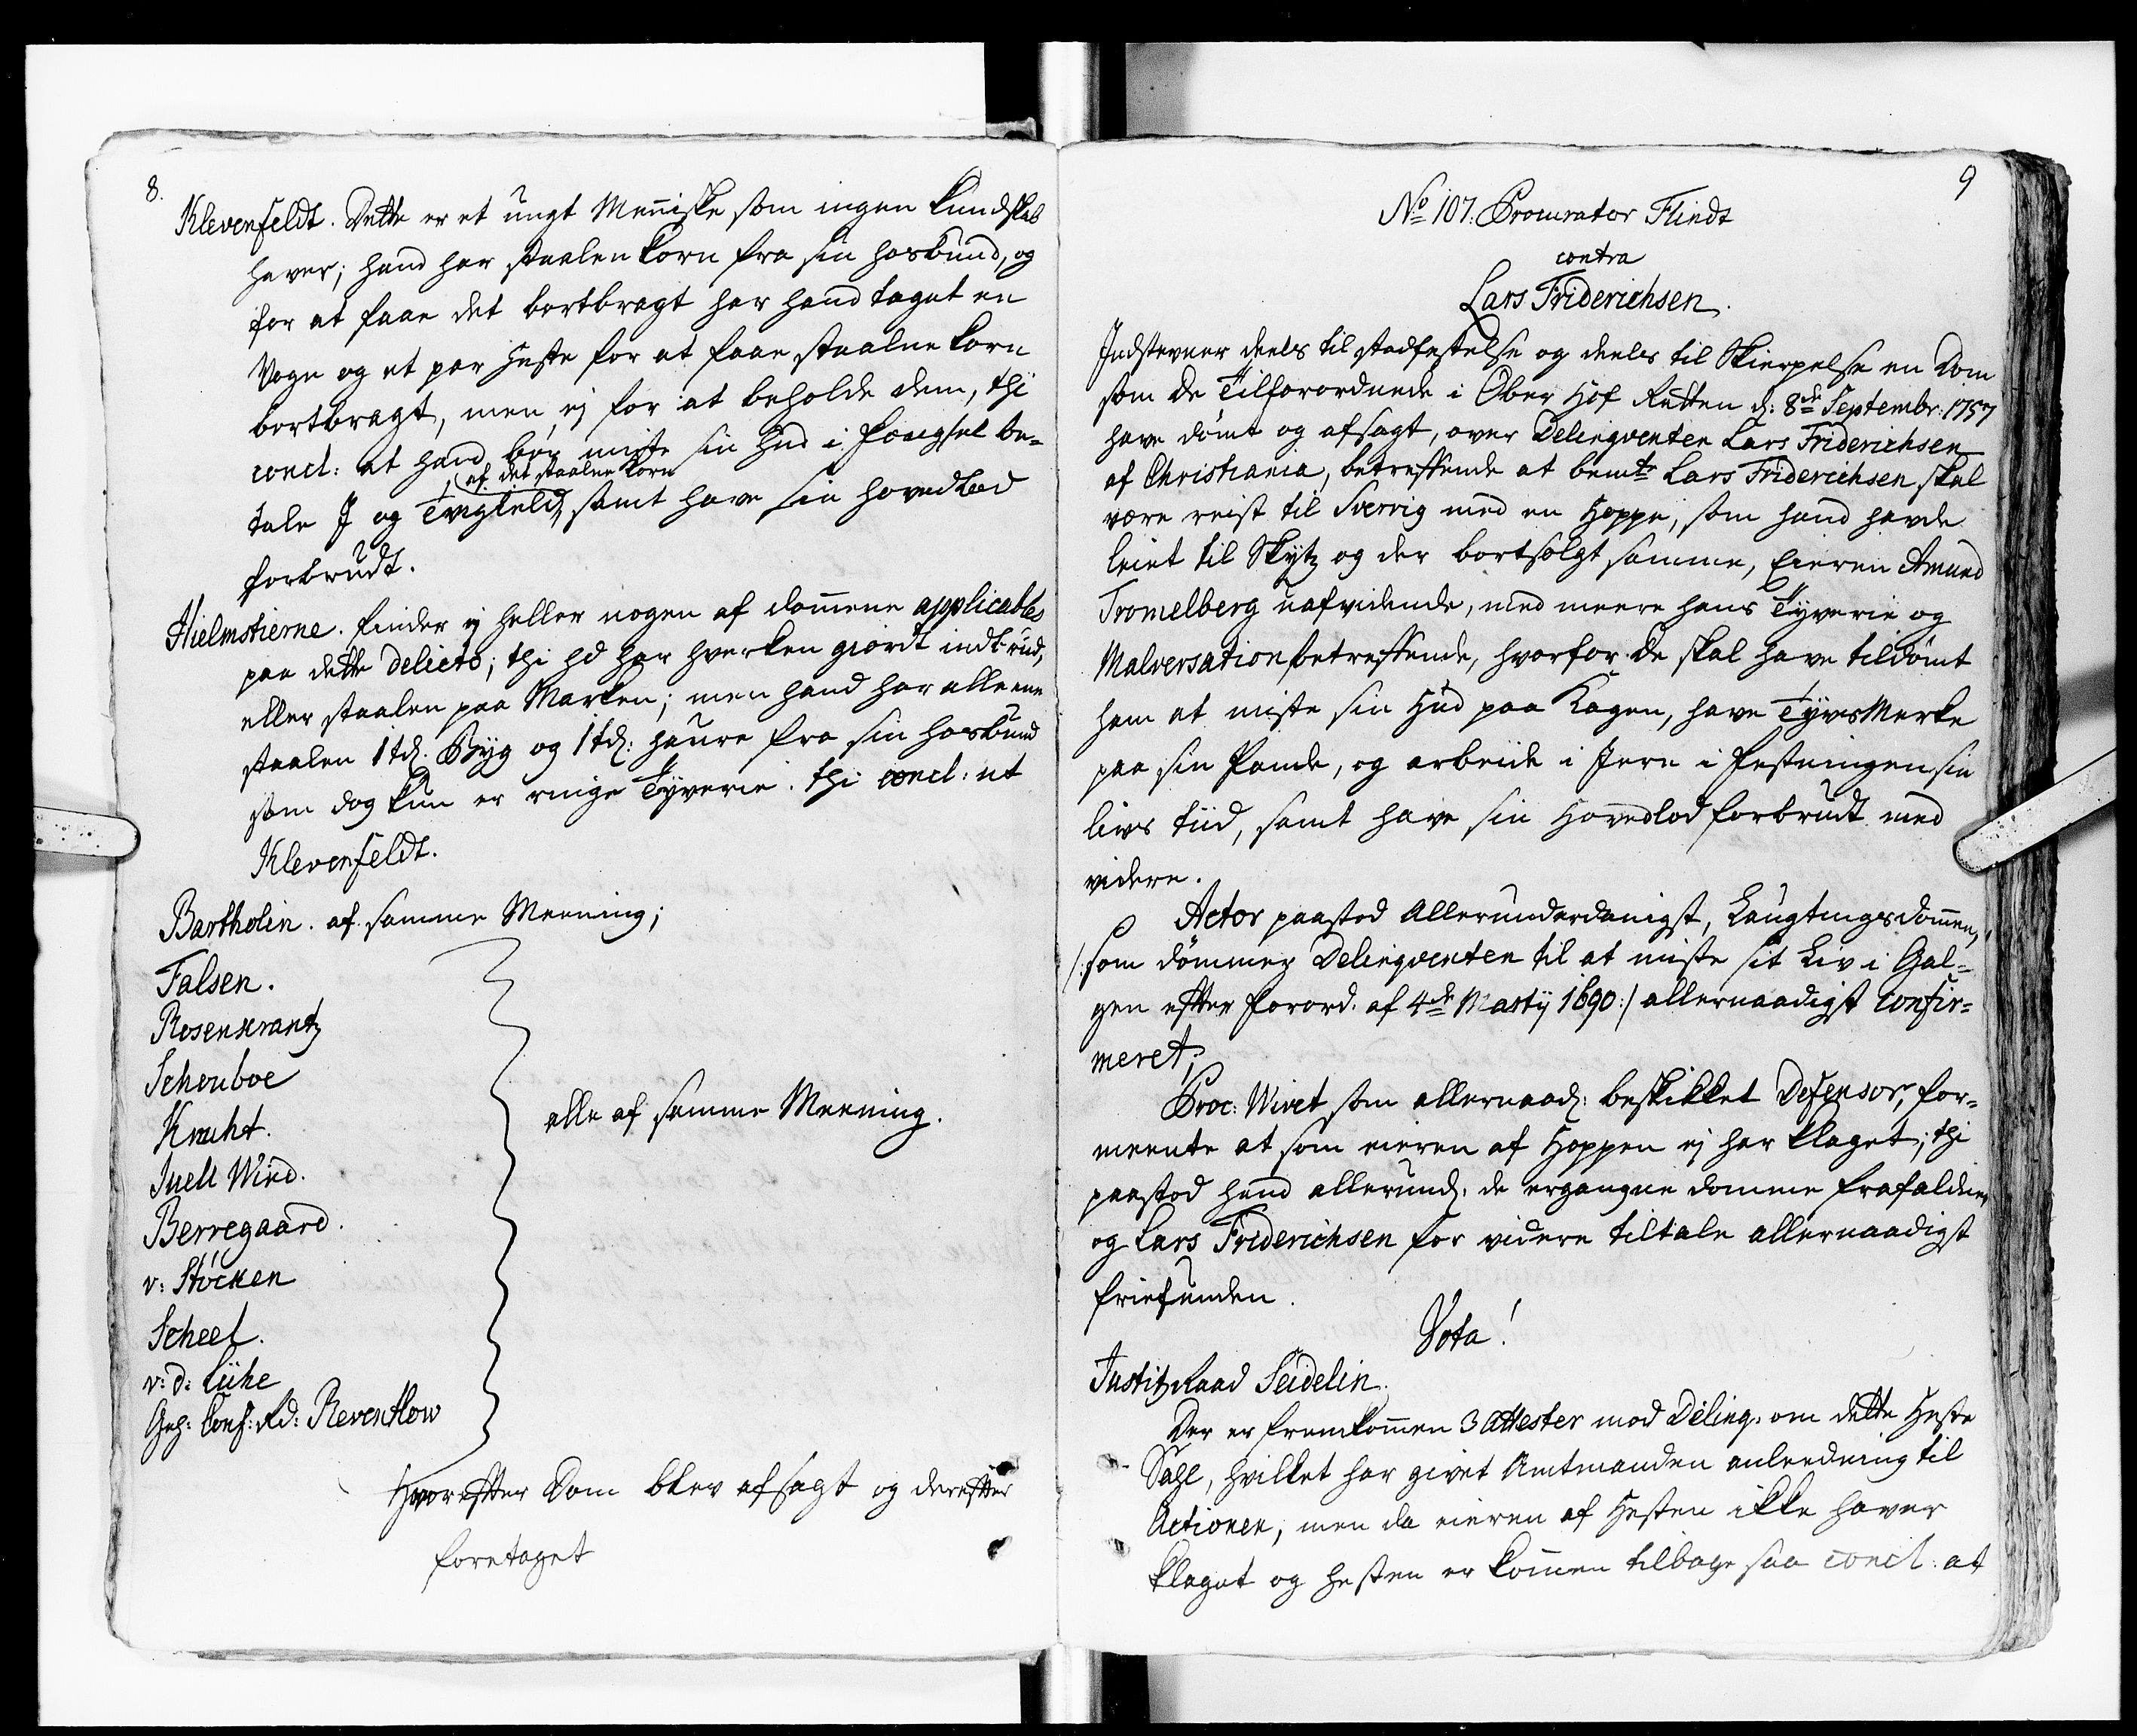 8.
Klevenfeldt. Dette er et ungt Meniske som ingen kundskab
haver; hand har staalen korn fra sin hosbund, og
for at faae det bortbragt har hand taget en
Vogn og et par Heste for at faae staalne korn
bortbragt, men ej for at beholde dem, thi
concl: at hand bør miste sin Hud i Fængsel be-
af det staalne Korn
tale J og Tvigield, samt have sin hovedlod
forbrudt.
Hielmstierne. finder ej heller nogen af domene applicables
paa dette delicto; thi hd har hverken giordt indbrud,
eller staalen paa Marken; men hand har alleene
staalen 1 td. Byg og 1 td: haure fra sin hosbund
som dog kun er ringe Tyverie. thi concl: ut
Klevenfeldt.
Bartholin. af samme Meening;
Falsen.
Rosenkrantz
Schouboe
Knuht.
Juell Wind.
Berregaard.
v: Stöcken
Scheel.
v: d: Lühe
Geh: Conf: Rd: Reventlow
alle af samme Meening.
Hvorefter Dom blev afsagt og derefter
foretaget
9
No 107. Procurator Flindt
contra
Lars Friderichsen.
Indstevner deels til stadfestelse og deels til Skierpelse en Dom
som de Tilforordnede i Ober Hof Retten d: 8de Septembr: 1757
have dömt og afsagt, over Delinqventen Lars Friderichsen
af Christiania, betreffende at bemte Lars Friderichsen skal
være reist til Sverrig med en Hoppe, som hand havde
leiet til Skytz og der bortsolgt samme, Eieren Amund
Tromelberg uafvidende, med meere hans Tyverie og
Malversation betreffende, hvorfor de skal have tildömt
ham at miste sin Hud paa Kagen, have Tyvs Merke
paa sin Pande, og arbeide i Jern i Festningen sin
livs tiid, samt have sin Hovedlod forbrudt med
videre.
Actor paastod Allerunderdanigst, Laugtingsdomen,
/: som dömmer Delinqventen til at miste sit Liv i Gal-
gen efter Forord. af 4de Martij 1690 :/ allernaadigst confir-
meret;
Proc: Wivet som allernaad: beskikket Defensor, for-
meente at som eieren af Hoppen ej har klaget; thi
paastod hand allerund: de ergangne domme frafaldne,
og Lars Friderichsen for videre tiltale allernaadigst
friefunden.
Vota!
Justitz Raad Seidelin.
Der er fremkomen 3 Attester mod Delinq. om dette Heste
Sahl, hvilket har givet Amtmanden anleedning til
Actionen, men da eieren af Hesten ikke haver
klaget og hesten er komen tilbage saa concl: at